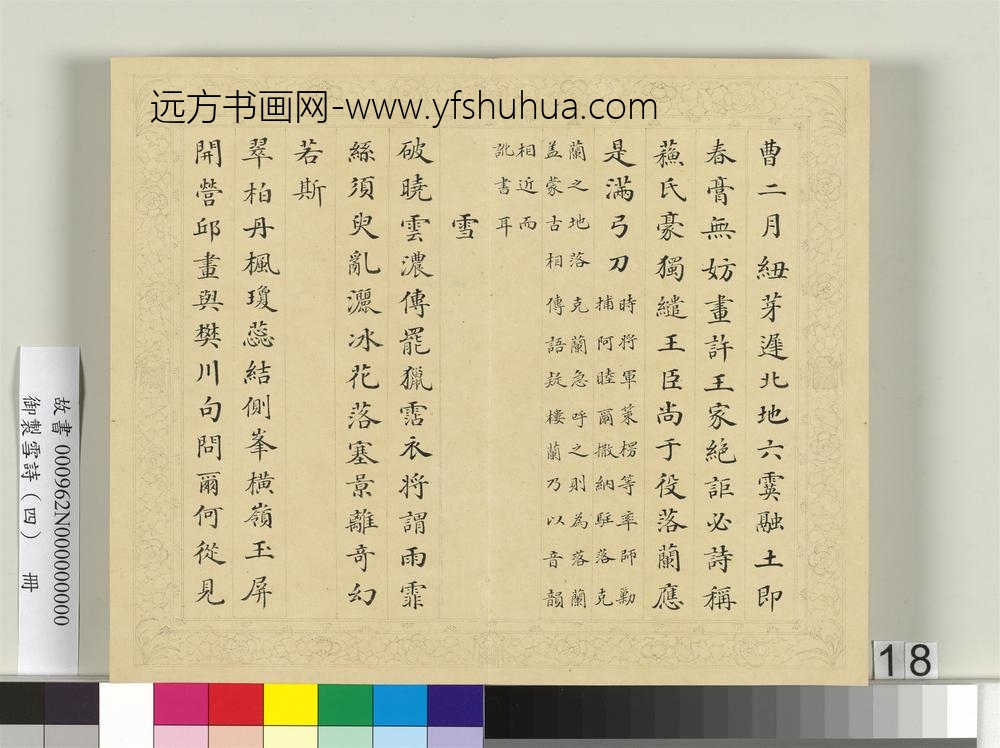 远方书画网-www.yfshuhua.com
曹二月紐芽遲北地六霙融土即
春膏無妨畫許王家絶詎必詩稱
蘓氏豪獨繾王臣尚于役落蘭應
是滿弓刀
時將軍策楞等率師勦
捕阿睦爾撒納駐落克
蘭之地落克蘭急呼之則為落蘭
盖蒙古相傳語疑樓蘭乃以音韻
相近而
訛書耳
雪
破曉雲濃傳罷獵霑衣將謂雨霏
絲須臾亂灑冰花落塞景離奇幻
若斯
翠柏丹楓瓊蕊結側峯橫嶺玉屏
開營邱畫與樊川句問爾何從見
故書 000962N000000000
御製雪詩（四） 冊
18